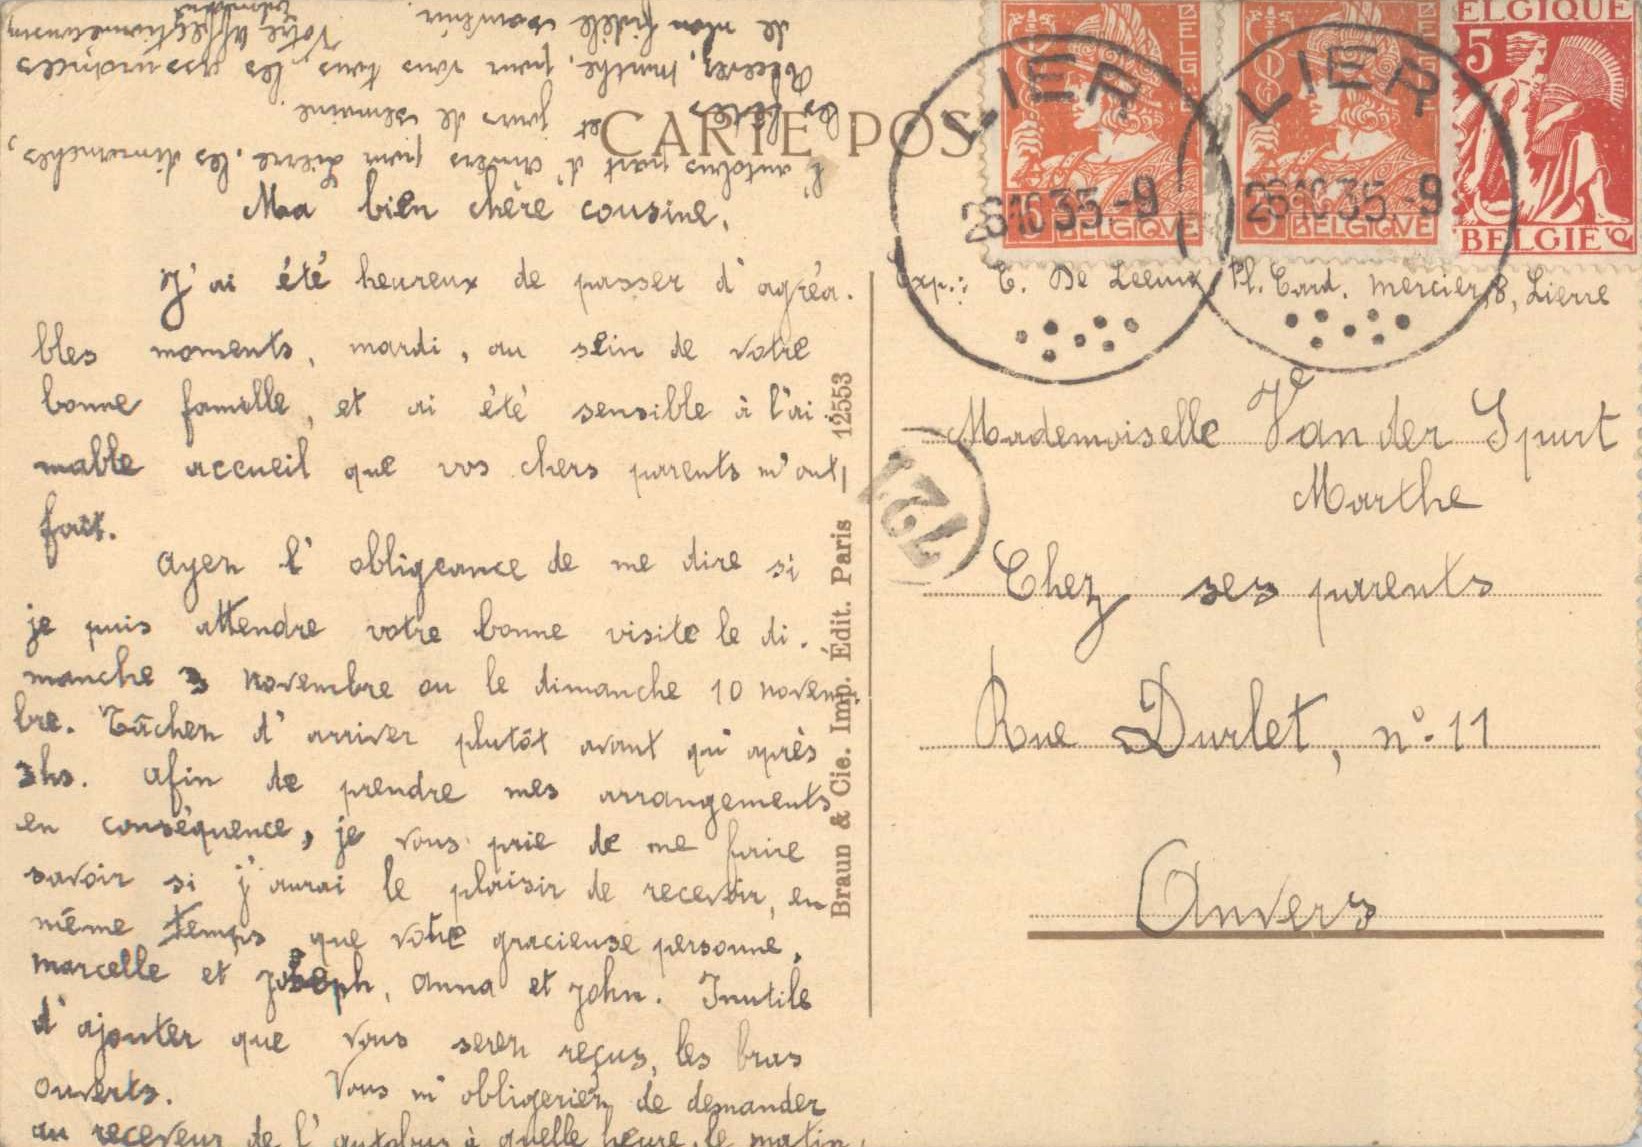 CARTE POS
Ma bien chère cousine,
J'ai été heureux de passer d'agréa-
bles moments, mardi, au sein de votre
bonne famille, et ai été sensible à l'ai-
mable accueil que vos chers parents m'ont
fait.
Ayez l'obligeance de me dire si
je puis attendre votre bonne visite le di-
manche 3 novembre ou le dimanche 10 novem-
bre. Tâchez d'arriver plutôt avant qu'après
3hs. Afin de prendre mes arrangements
en conséquence, je vous prie de me faire
savoir si j'aurai le plaisir de recevoir, en
même temps que votre gracieuse personne,
Marcelle et Joseph, Anna et John. Inutile
d'ajouter que vous serez reçus, les bras
ouverts. Vous m'obligeriez de demander
au receveur de l'autobus à quelle heure, le matin,
l'autobus part d'Anvers pour Lierre, les dimanches,
les fêtes et jours de semaine.
Recevez, Marthe, pour vous tous, les assurances
de mon fidèle souvenir.
Votre affectionné cousin
Braun & Cie. Imp. Édit. Paris 12553
BELGIQUE
5
BELGIQUE
5
ELGIQUE
5
BELGIË
LIER
26 10 35 - 9
LIER
26 10 35 - 9
Exp.: C. De Leeuw Pl. Card. Mercier, 8, Lierre
721
Mademoiselle Van der Spurt
Marthe
Chez ses parents
Rue Durlet, n° 11
Anvers